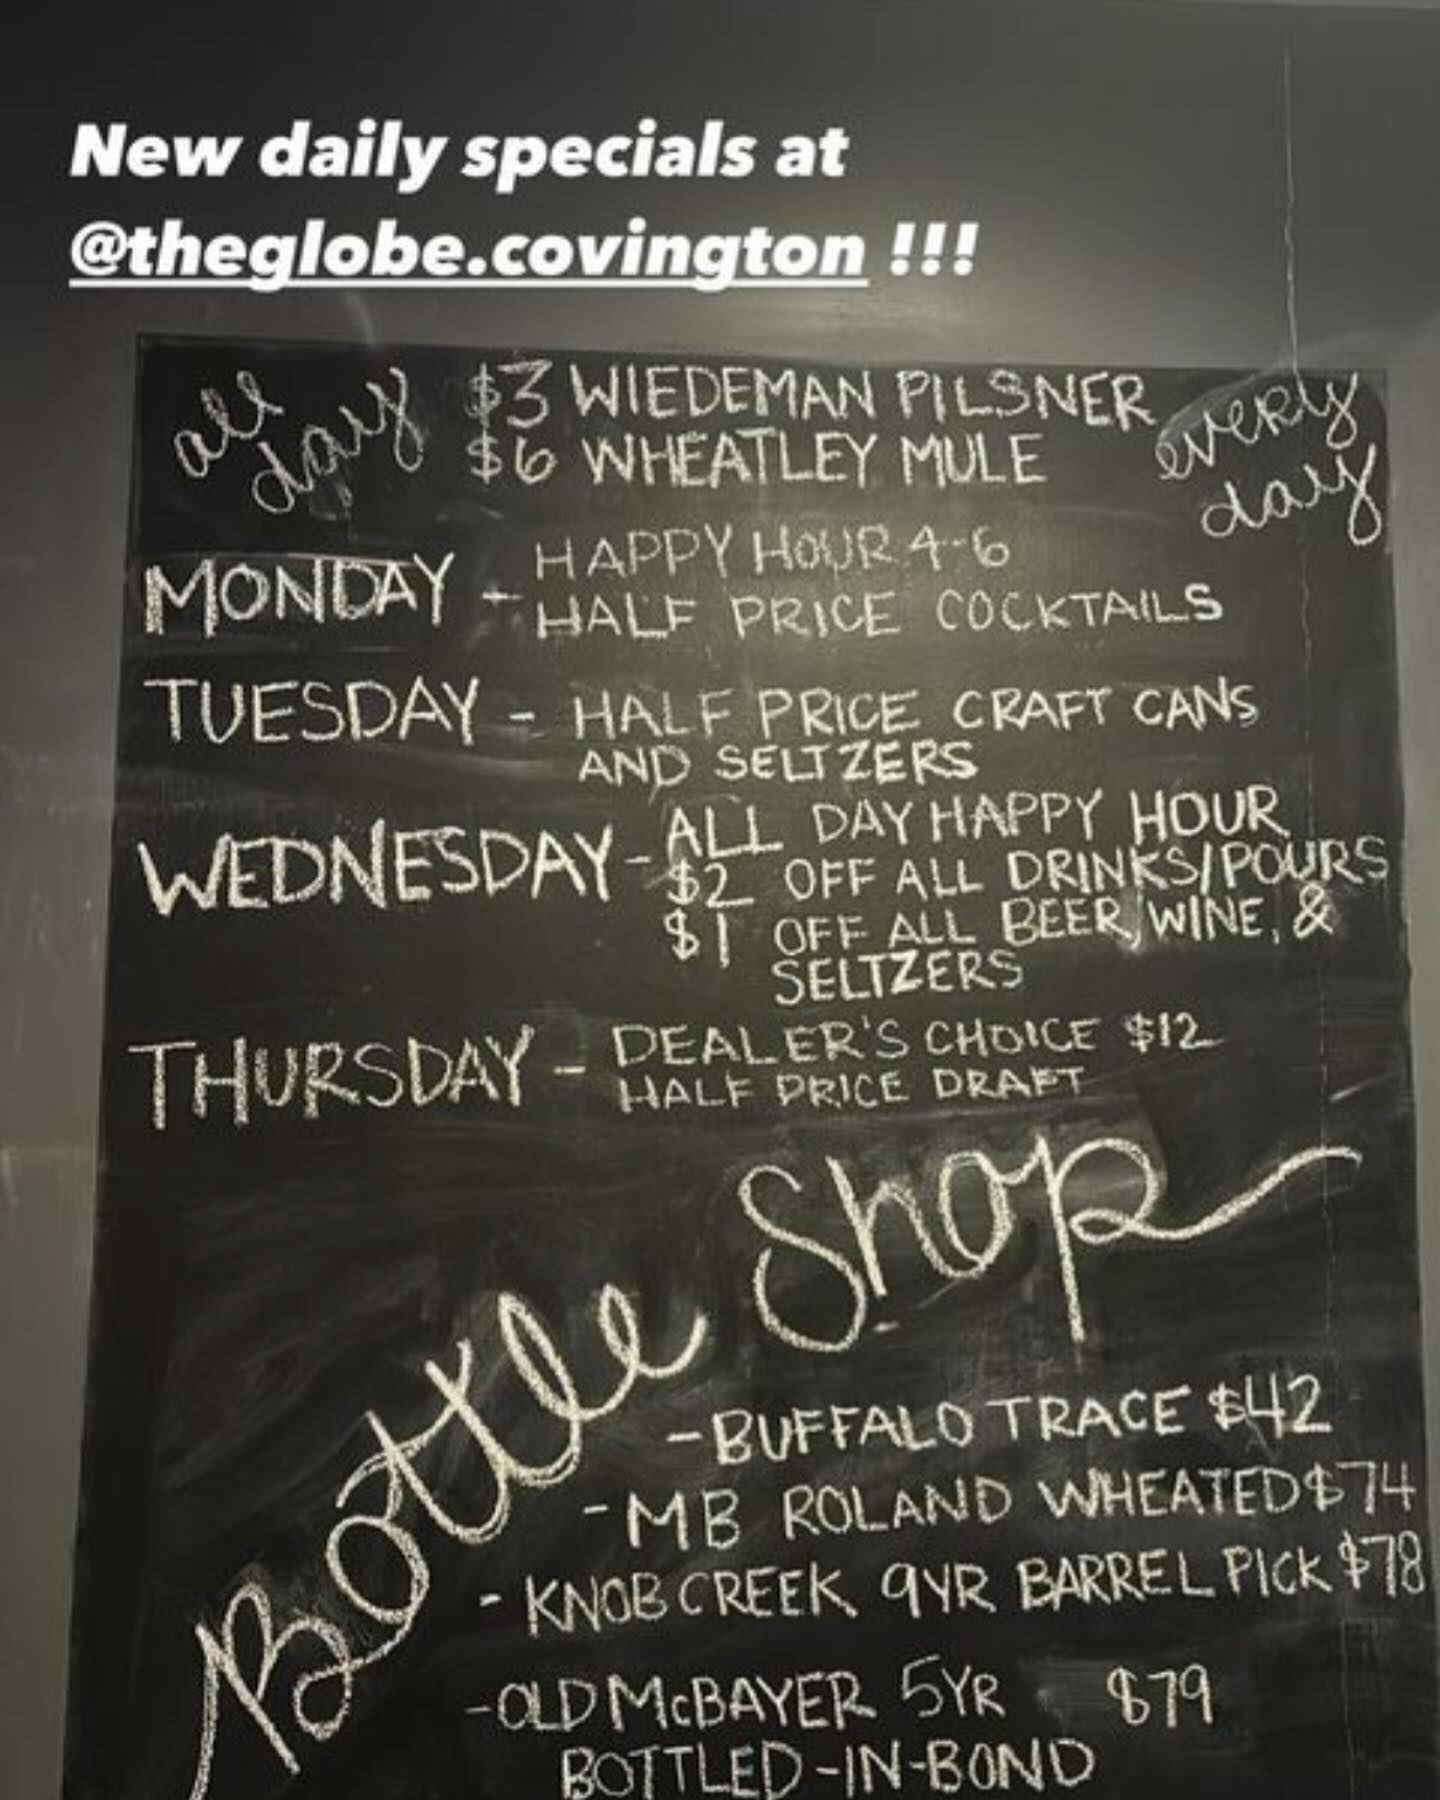 New daily specials at
@theglobe.covington !!!
all day $3 WIEDEMAN PILSNER every day
$6 WHEATLEY MULE
MONDAY - HAPPY HOUR 4-6
HALF PRICE COCKTAILS
TUESDAY - HALF PRICE CRAFT CANS
AND SELTZERS
WEDNESDAY - ALL DAY HAPPY HOUR
$2 OFF ALL DRINKS/POURS
$1 OFF ALL BEER, WINE, &
SELTZERS
THURSDAY - DEALER'S CHOICE $12
HALF PRICE DRAFT
Bottle Shop
- BUFFALO TRACE $42
- MB ROLAND WHEATED $74
- KNOB CREEK 9YR BARREL PICK $78
- OLD McBAYER 5YR $79
BOTTLED-IN-BOND